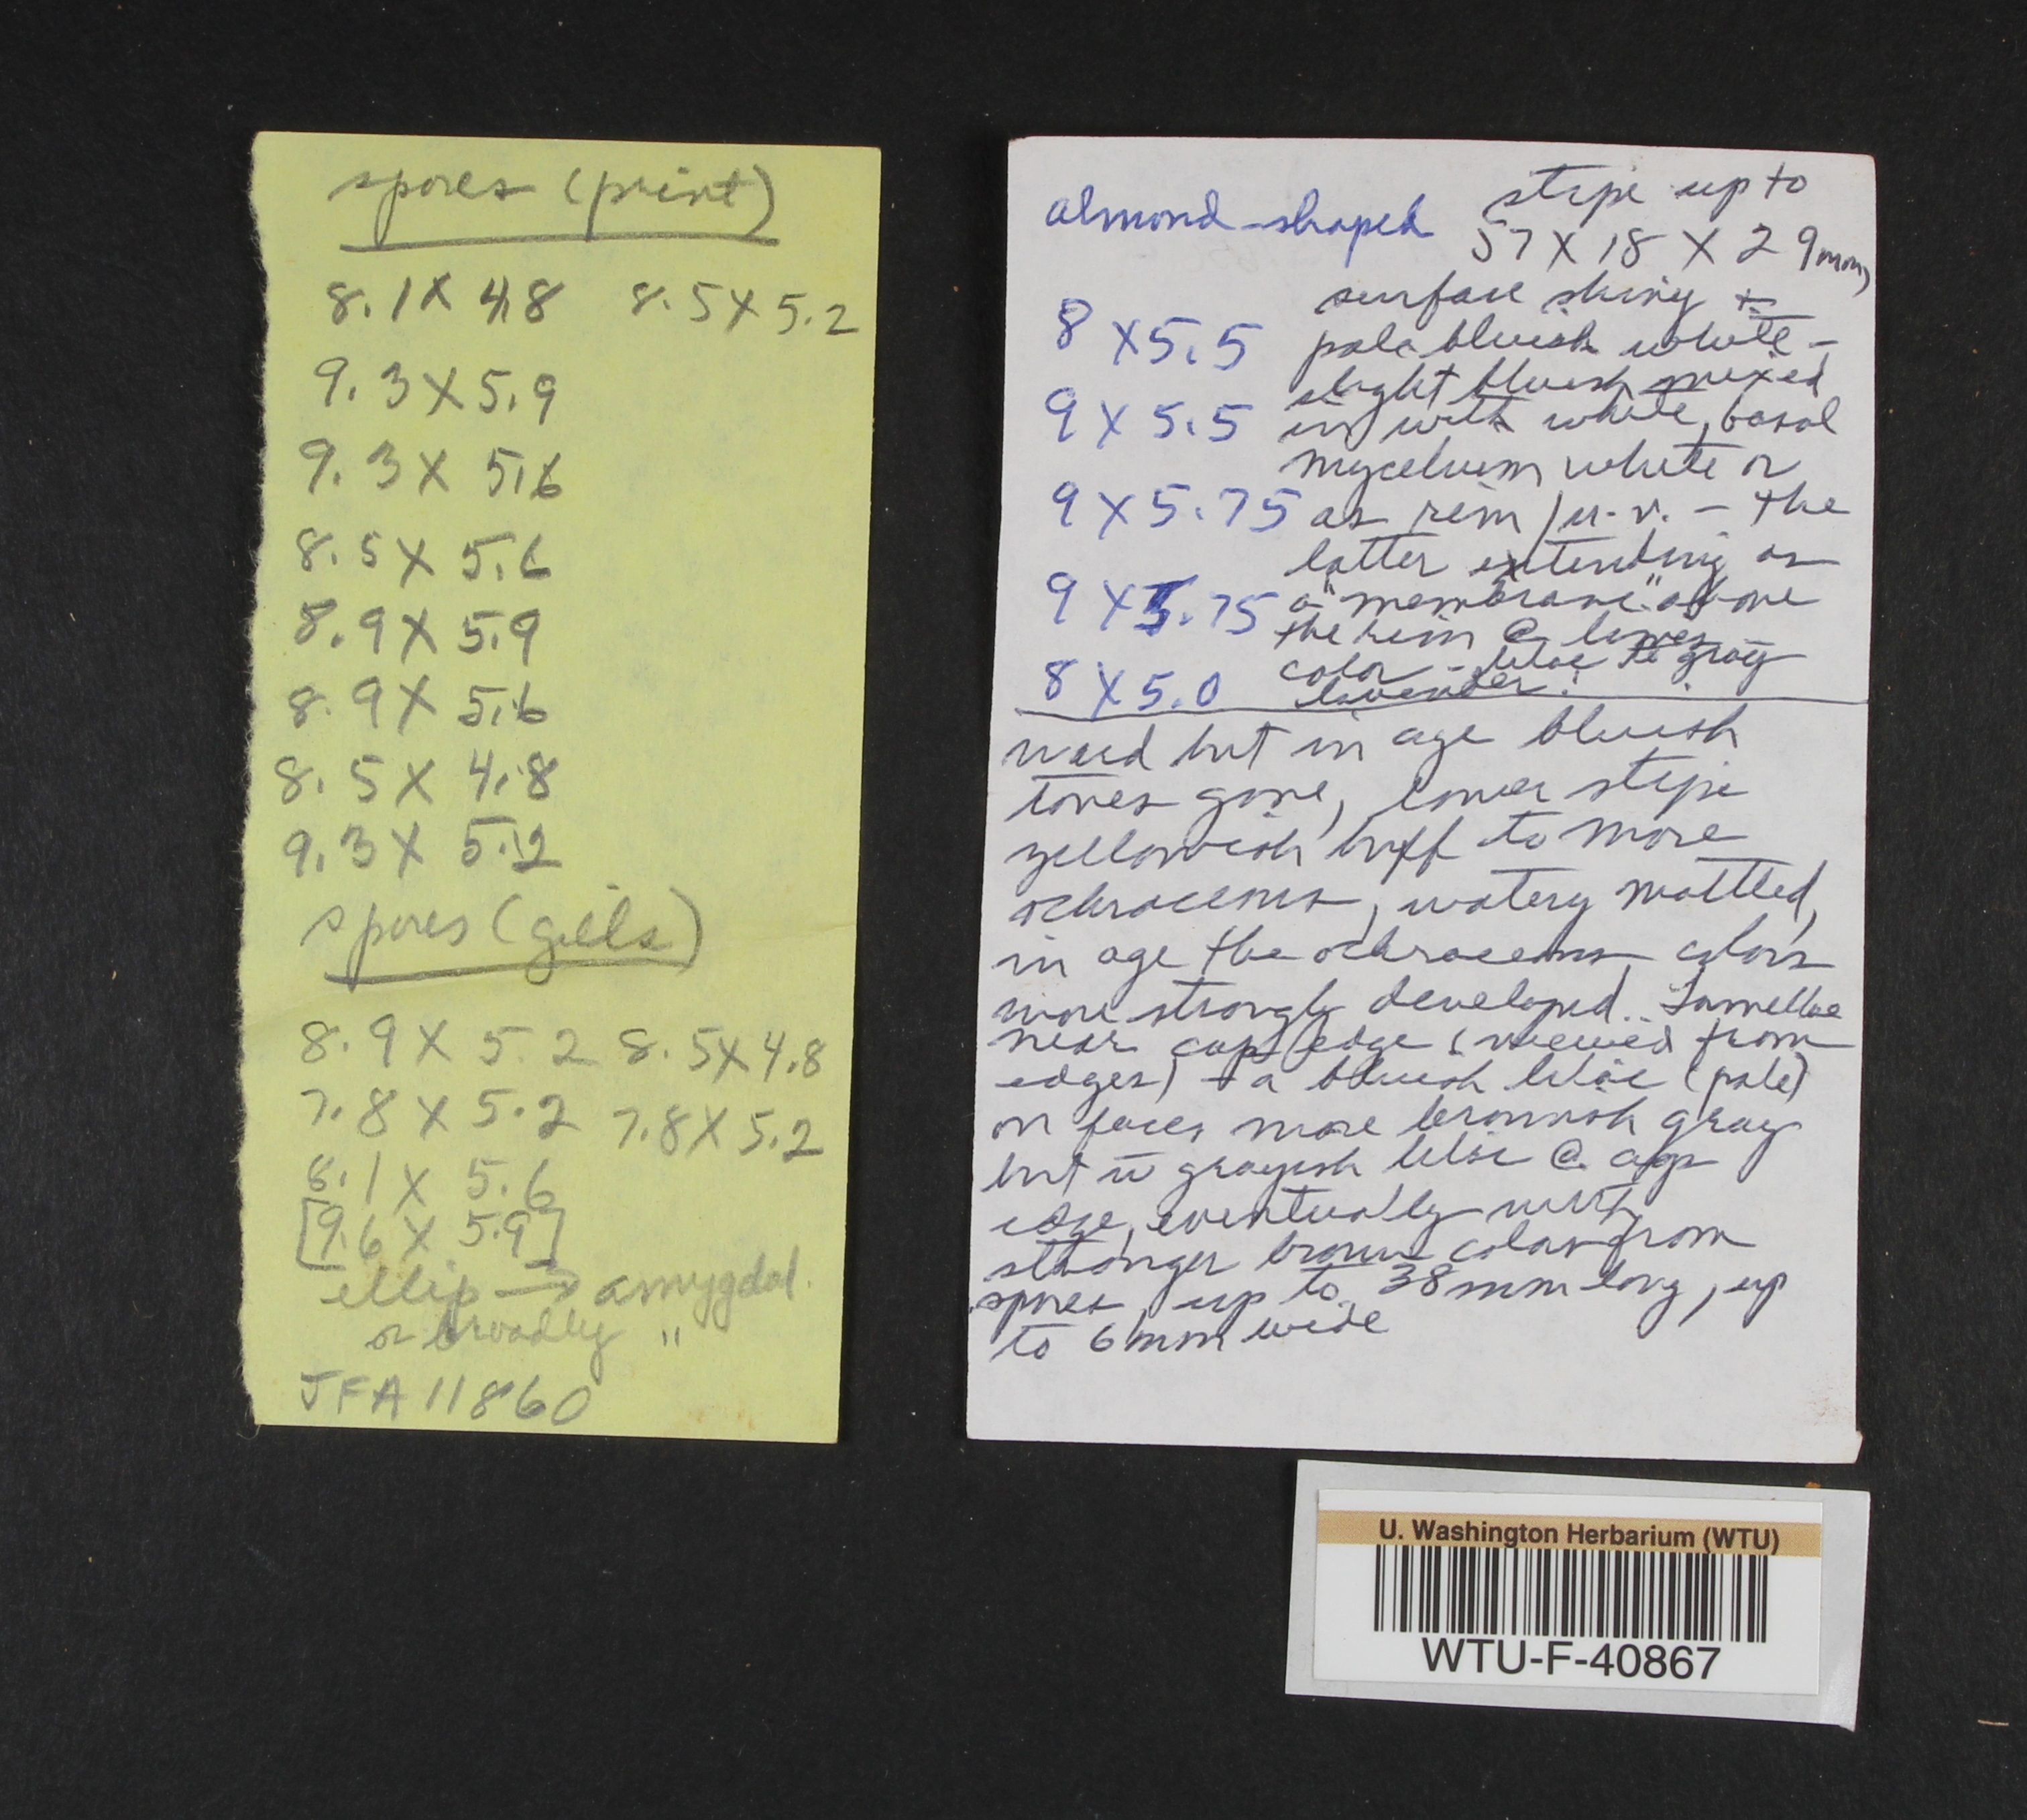 spores (print)
8.1 X 4.8 8.5 X 5.2
9.3 X 5.9
9.3 X 5.6
8.5 X 5.6
8.9 X 5.9
8.9 X 5.6
8.5 X 4.8
9.3 X 5.2
spores (gills)
8.9 X 5.2 8.5 X 4.8
7.8 X 5.2 7.8 X 5.2
8.1 X 5.6
[9.6 X 5.9]
ellip → amygdal.
or broadly "
JFA 11860
almond-shaped
8 X 5.5
9 X 5.5
9 X 5.75
9 X 5.75
8 X 5.0
stipe up to
57 X 18 X 29mm,
surface shiny ±
pale bluish white -
slight bluish mixed
in with white, basal
mycelium white or
as rim / u.v. - the
latter extending as
a "membrane" above
the rim @ lower
color - lilac to gray
lavender.
ward but in age bluish
tones gone, lower stipe
yellowish buff to more
ochraceous, watery mottled,
in age the ochraceous colors
more strongly developed. Lamellae
near cap edge (viewed from
edges) ± a bluish lilac (pale)
on faces more brownish gray
but w̄ grayish lilac @ cap
edge, eventually with
stronger brown color from
spores, up to 38mm long, up
to 6mm wide
U. Washington Herbarium (WTU)
WTU-F-40867